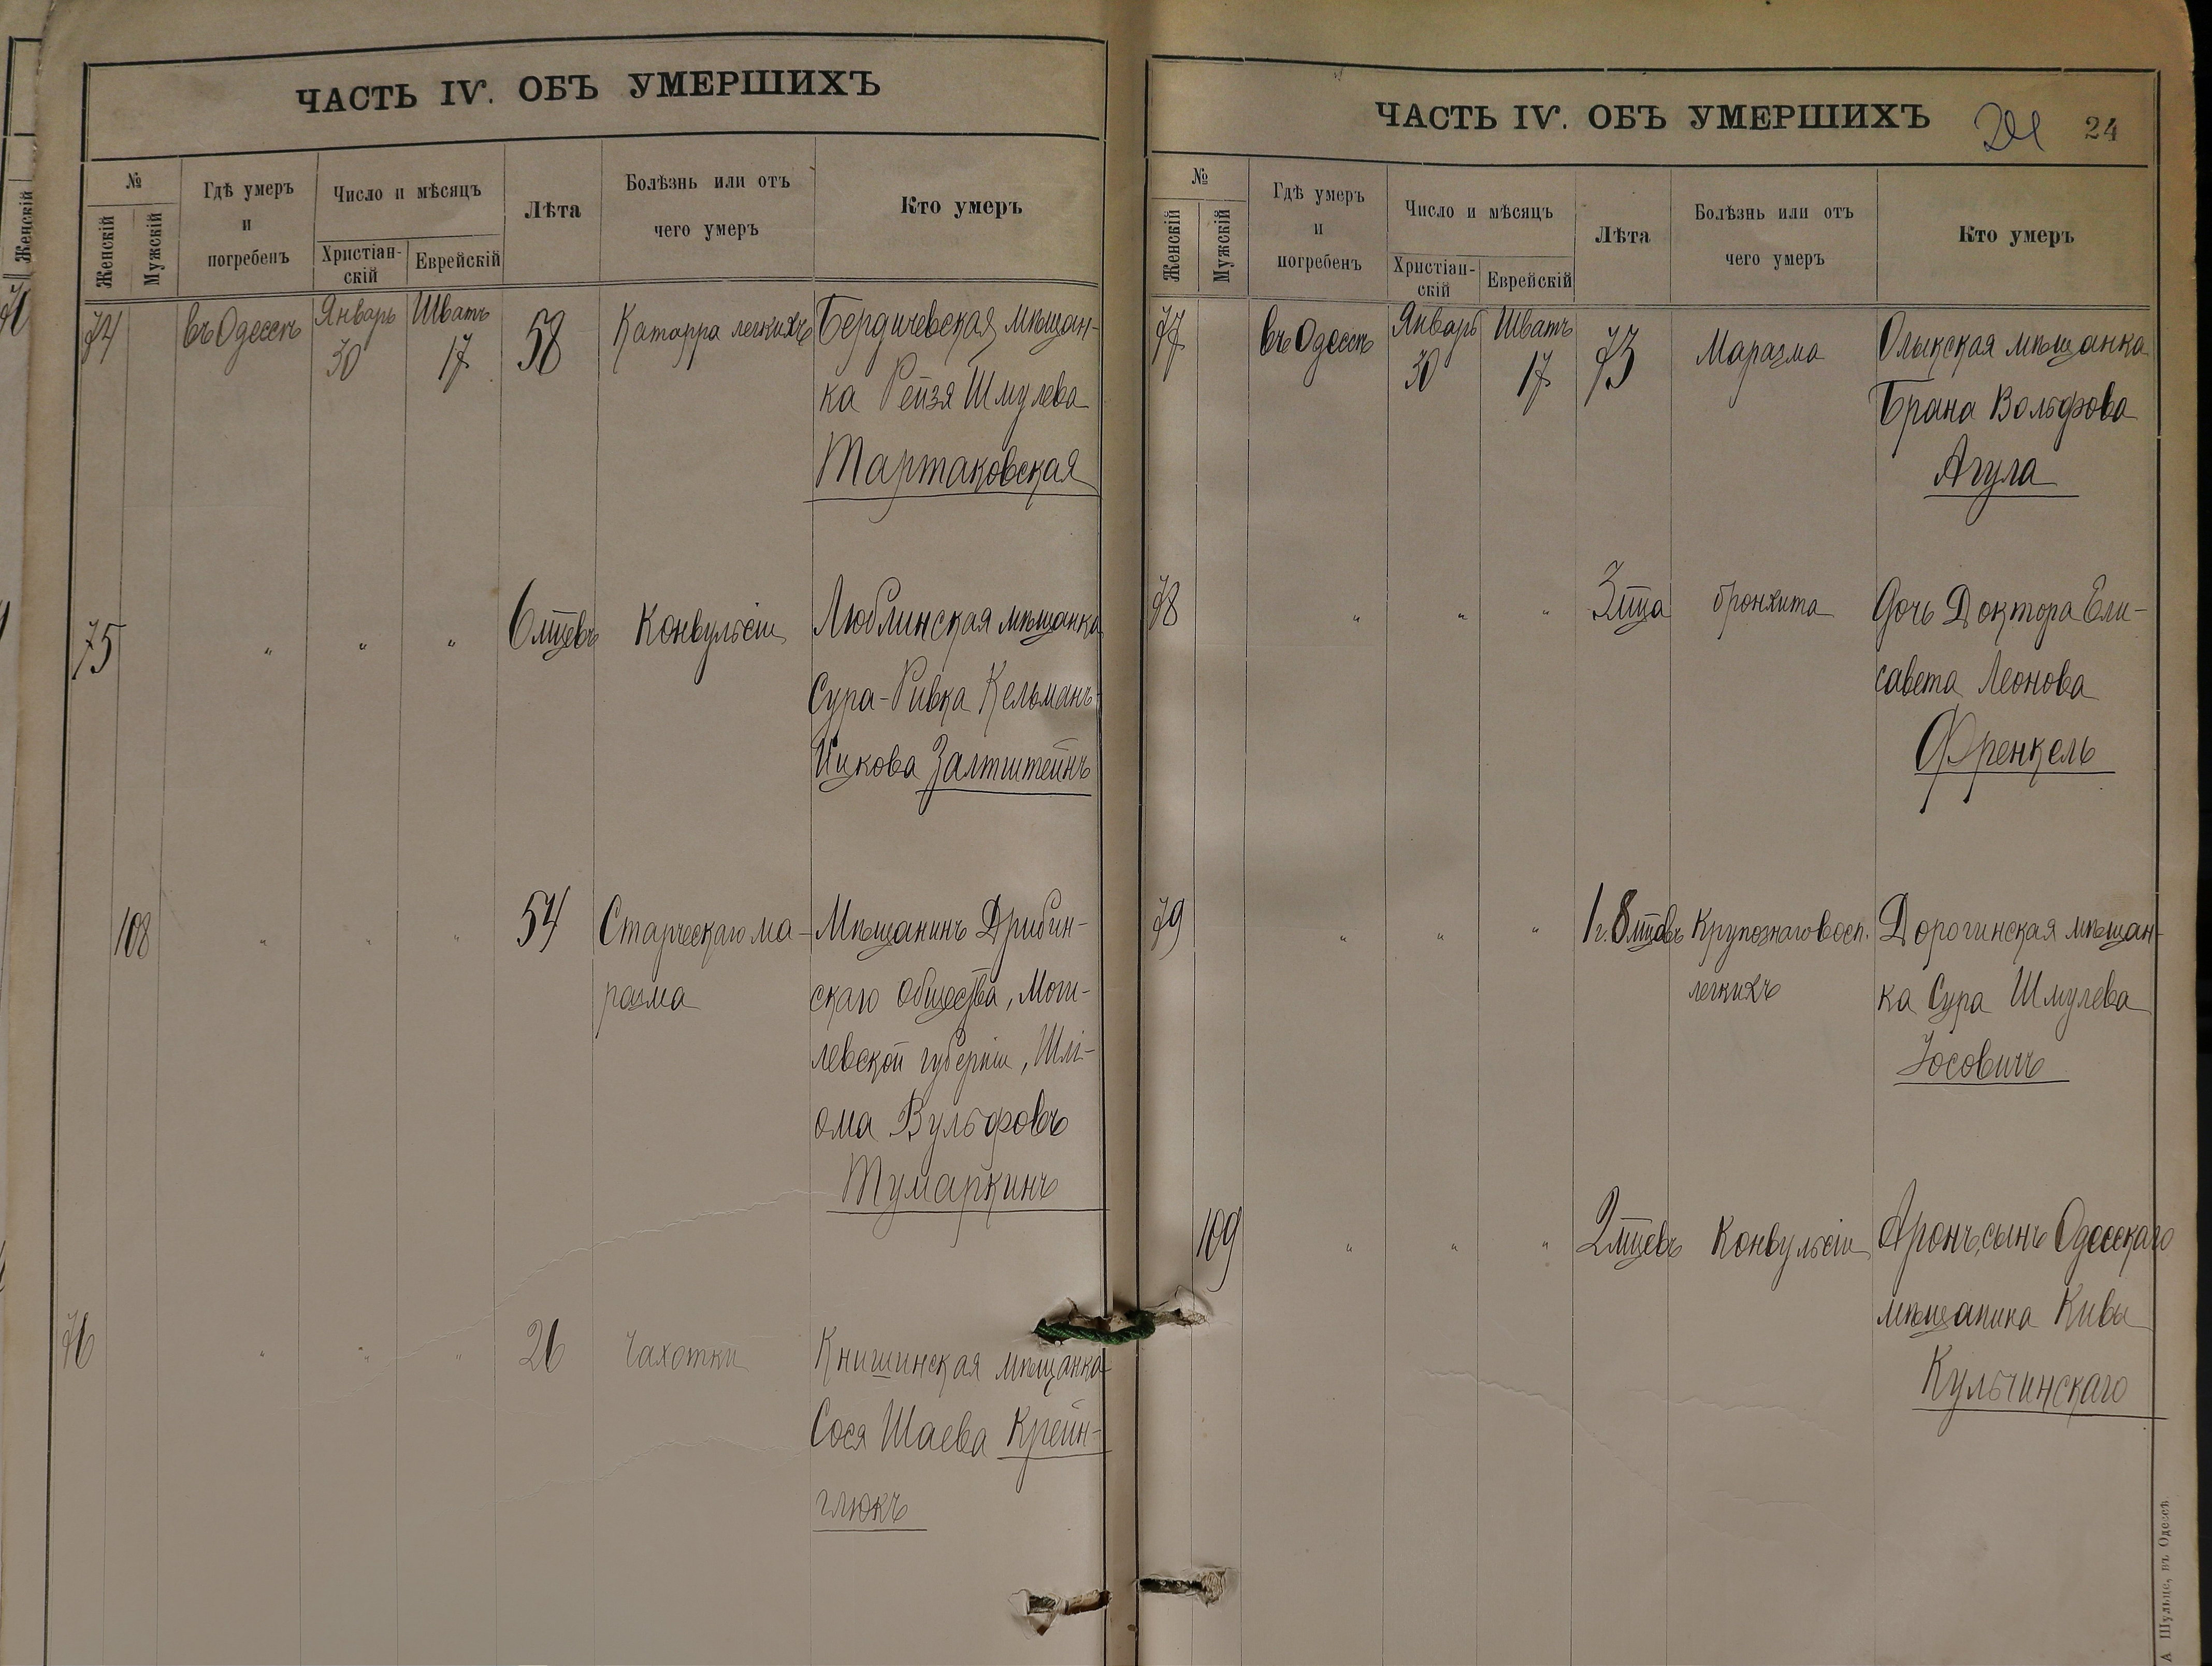 ЧАСТЬ IV. ОБЪ УМЕРШИХЪ
№
Женскій
Мужскій
Гдѣ умеръ
и
погребенъ
Число и мѣсяцъ
Христіан-
скій
Еврейскій
Лѣта
Болѣзнь или отъ
чего умеръ
Кто умеръ
74 въ Одессѣ Январь 30 Шватъ 17 58 Катарра легкихъ Бердичевская мѣщан-
ка Рейзя Шмулева
Тартаковская
75 " " " 6 мцевъ Конвульсіи Люблинская мѣщанка
Сура-Ривка Кельманъ-
Ицкова Залтштейнъ
108 " " " 54 Старческаго ма- Мѣщанинъ Дрибин-
разма скаго общества, Моги-
левской губерніи, Шлі-
ома Вульфовъ
Тумаркинъ
76 " " " 26 Чахотки Книшинская мѣщанка
Сося Шаева Крейн-
глюкъ
ЧАСТЬ IV. ОБЪ УМЕРШИХЪ 24
№
Женскій
Мужскій
Гдѣ умеръ
и
погребенъ
Число и мѣсяцъ
Христіан-
скій
Еврейскій
Лѣта
Болѣзнь или отъ
чего умеръ
Кто умеръ
77 въ Одессѣ Январь 30 Шватъ 17 73 Маразма Олыкская мѣщанка
Брана Вольфова
Агула
78 " " " 3 мца бронхита Дочь Доктора Ели-
савета Леонова
Френкель
79 " " " 1 г. 8 мцевъ Крупознаго восп. Дорогинская мѣщан-
легкихъ ка Сура Шмулева
Іосовичъ
109 " " " 2 мцевъ Конвульсіи Аронъ, сынъ Одесскаго
мѣщанина Кивы
Кульчинскаго
А Шульце, въ Одессѣ